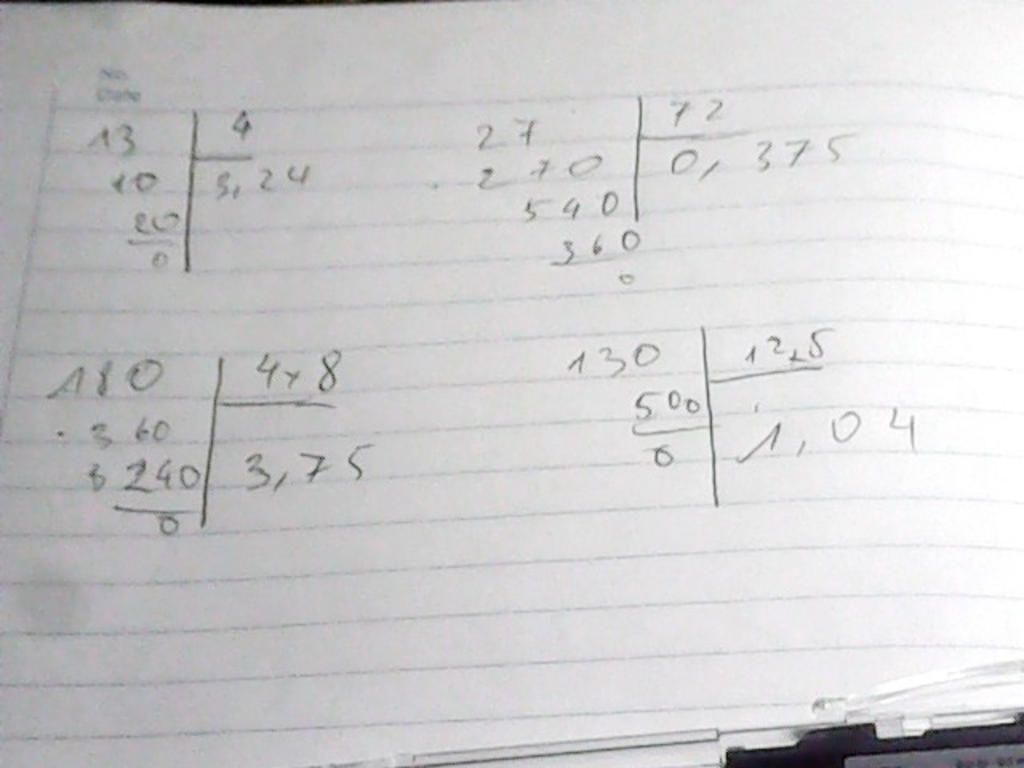 No.
Date
13 4
10 3,24
20
0
27 72
270 0,375
540
360
0
180 4,8
360
3240 3,75
0
130 12,5
500
0 1,04